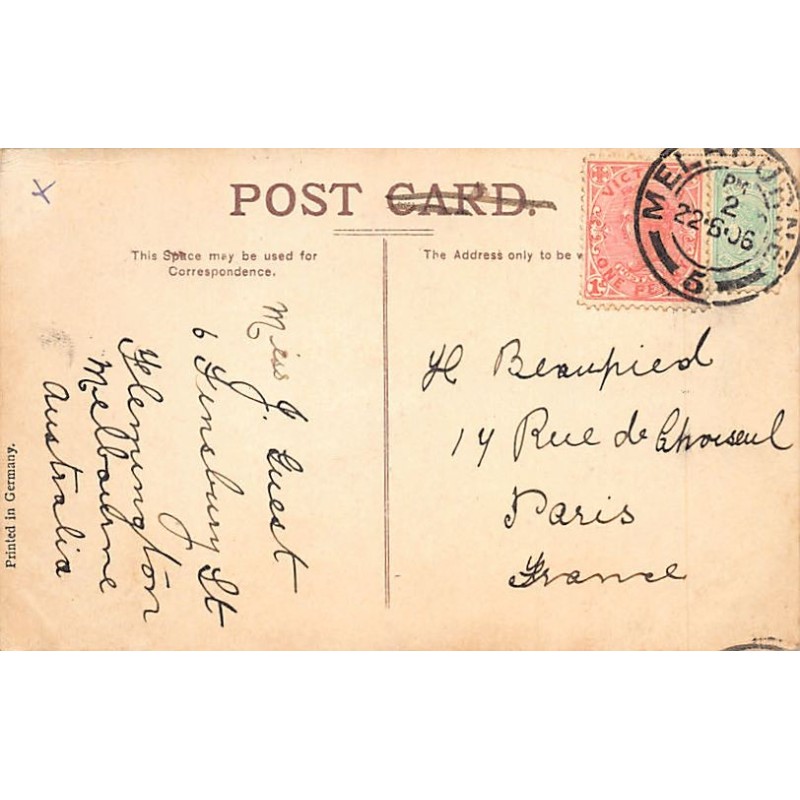 POST CARD.
This Space may be used for
Correspondence.
The Address only to be
VICT
ONE PE
1D
MELBOURNE
PM
2
22·6·06
5
Miss J. Guest
6 Finsbury St
Flemington
Melbourne
Australia
H Beaupied
17 Rue de Choiseul
Paris
France
Printed in Germany.
X